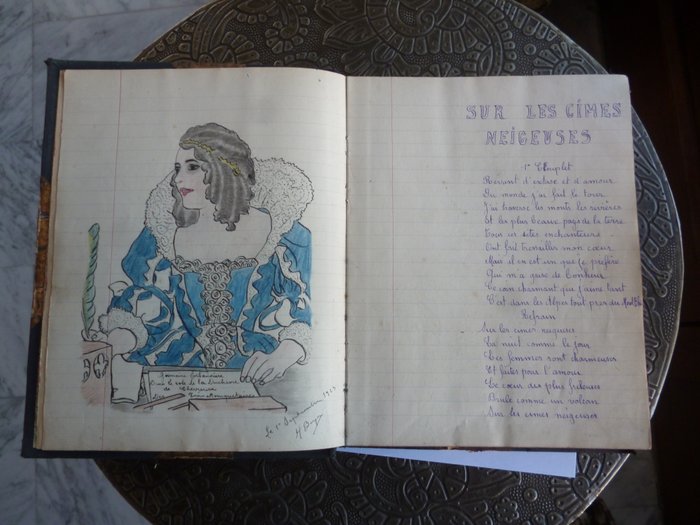 Germaine
Dans le role de la Duchesse
de Chevreuse
Des Trois Mousquetaires
Le 1er Septembre
SUR LES CIMES
NEIGEUSES
1er Couplet
Revant d'extase et d'amour
Du monde j'ai fait le tour
J'ai traversé les monts les rivières
Et les plus beaux pays de la terre
Tous ces sites enchanteurs
Ont fait tressaillir mon cœur
Mais il en est un que je préfère
Qui m'a grisé de bonheur
Ce coin charmant que j'aime tant
C'est dans les Alpes tout près du Mont Blanc
Refrain
Sur les cimes neigeuses
La nuit comme le jour
Les femmes sont charmeuses
Et faites pour l'amour
Le coeur des plus frileuses
Brule comme un volcan
Sur les cimes neigeuses